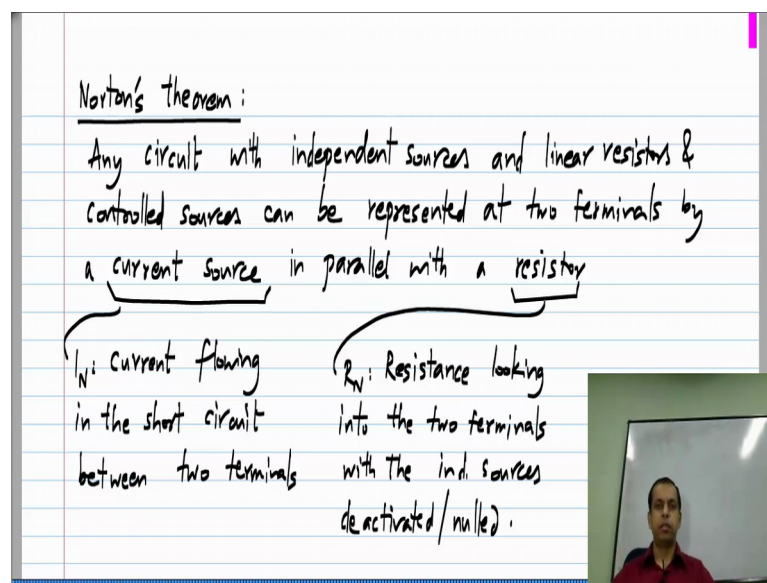 Norton's theorem:
Any circuit with independent sources and linear resistors &
controlled sources can be represented at two terminals by
a current source in parallel with a resistor
I_N: Current flowing
in the short circuit
between two terminals
R_N: Resistance looking
into the two terminals
with the ind. sources
deactivated/nulled.